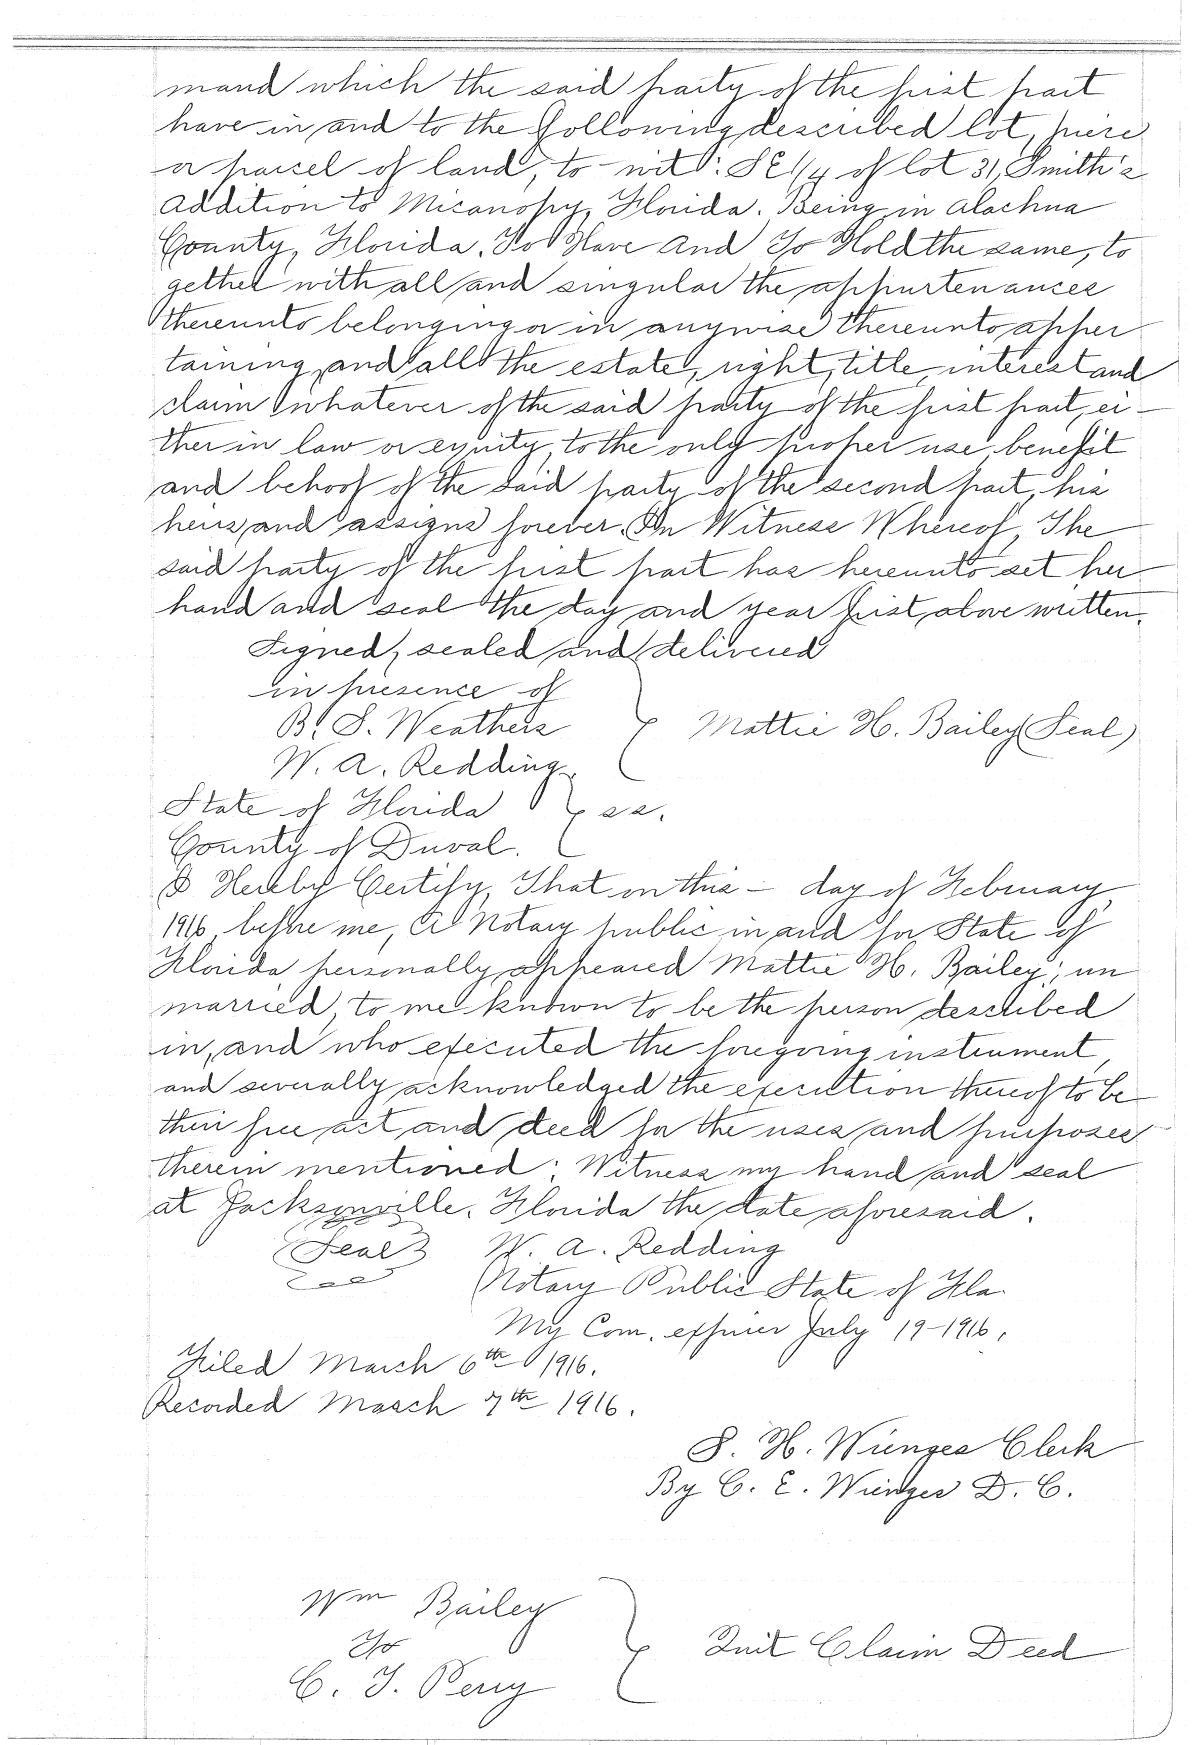 mand which the said party of the first part
have in and to the following described lot, piece
or parcel of land, to-wit: SE 1/4 of lot 31, Smith's
Addition to Micanopy, Florida. Being in Alachua
County, Florida. To Have And To Hold the same, to
gether with all and singular the appurtenances
thereunto belonging or in anywise thereunto apper
taining, and all the estate, right, title, interest and
claim whatever of the said party of the first part, ei-
ther in law or equity, to the only proper use, benefit
and behoof of the said party of the second part, his
heirs and assigns forever. In Witness Whereof, The
said party of the first part has hereunto set her
hand and seal the day and year first above written.
Signed, sealed and delivered
in presence of
B. S. Weathers } Mattie H. Bailey (Seal)
W. A. Redding.
State of Florida } ss.
County of Duval.
I Hereby Certify, That on this - day of February,
1916, before me, A Notary public in and for State of
Florida personally appeared Mattie H. Bailey; un
married, to me known to be the person described
in, and who executed the foregoing instrument,
and severally acknowledged the execution thereof to be
their free act and deed for the uses and purposes
therein mentioned; Witness my hand and seal
at Jacksonville, Florida the date aforesaid.
(Seal) W. A. Redding
Notary Public State of Fla.
My Com. expires July 19-1916.
Filed March 6th 1916.
Recorded March 7th 1916.
S. H. Wienges Clerk
By C. E. Wienges D. C.
Wm Bailey
To } Quit Claim Deed
C. J. Perry